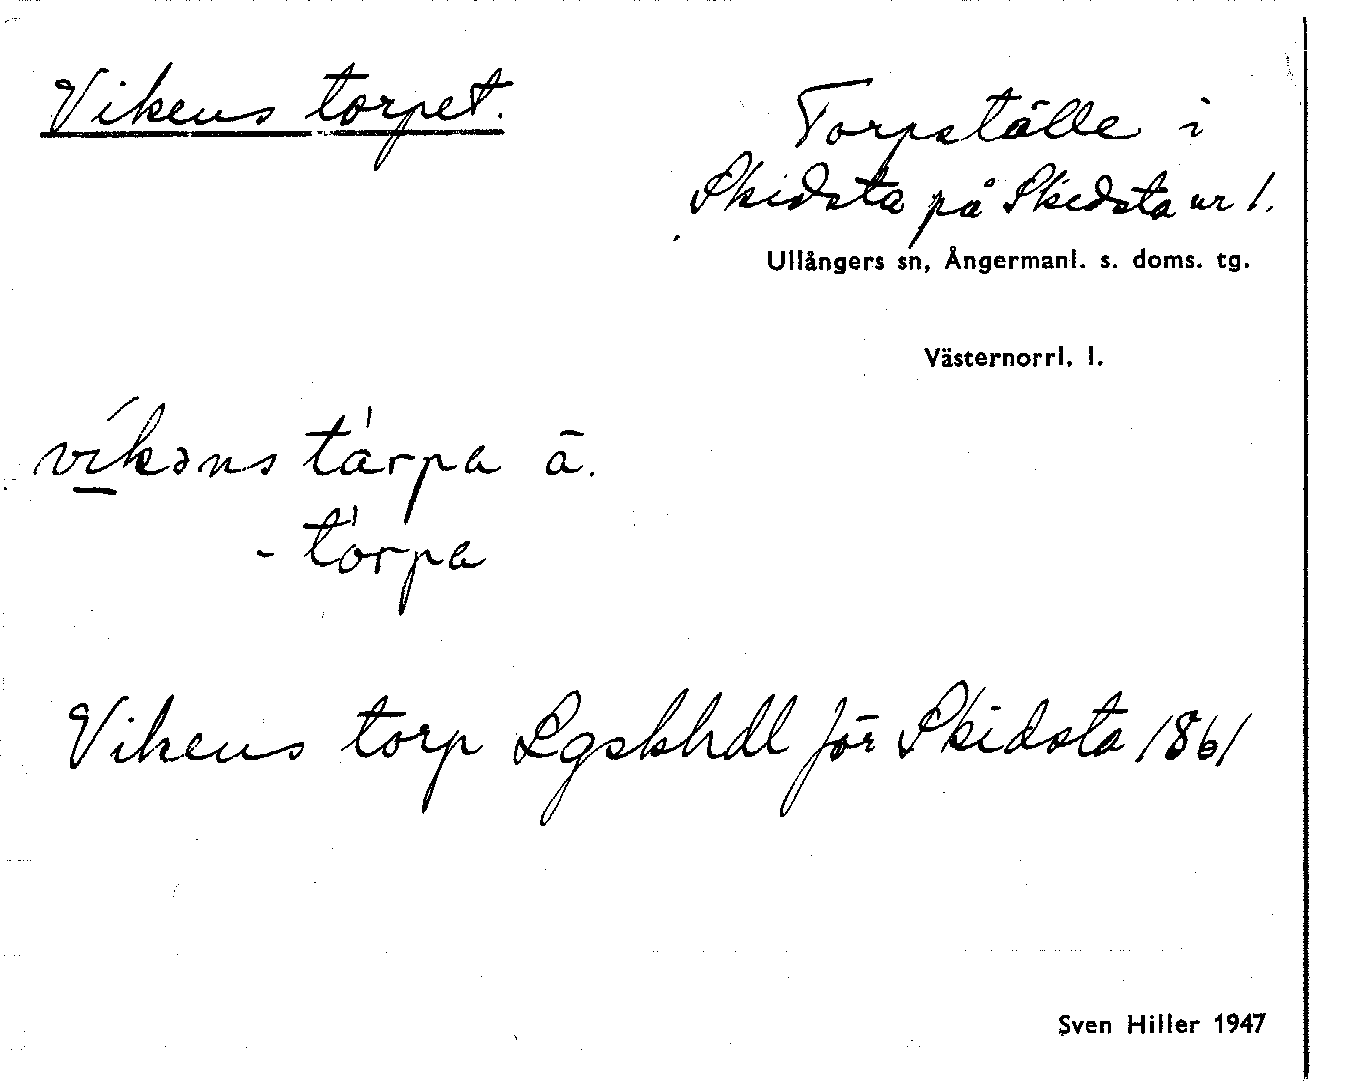 Vikens torpet.
Torpställe i
Skidsta på Skidsta nr 1.
Ullångers sn, Ångermanl. s. doms. tg.
Västernorrl. l.
víkəns tárpa ā.
- tórpa
Vikens torp Lgskhdl för Skidsta 1861
Sven Hiller 1947